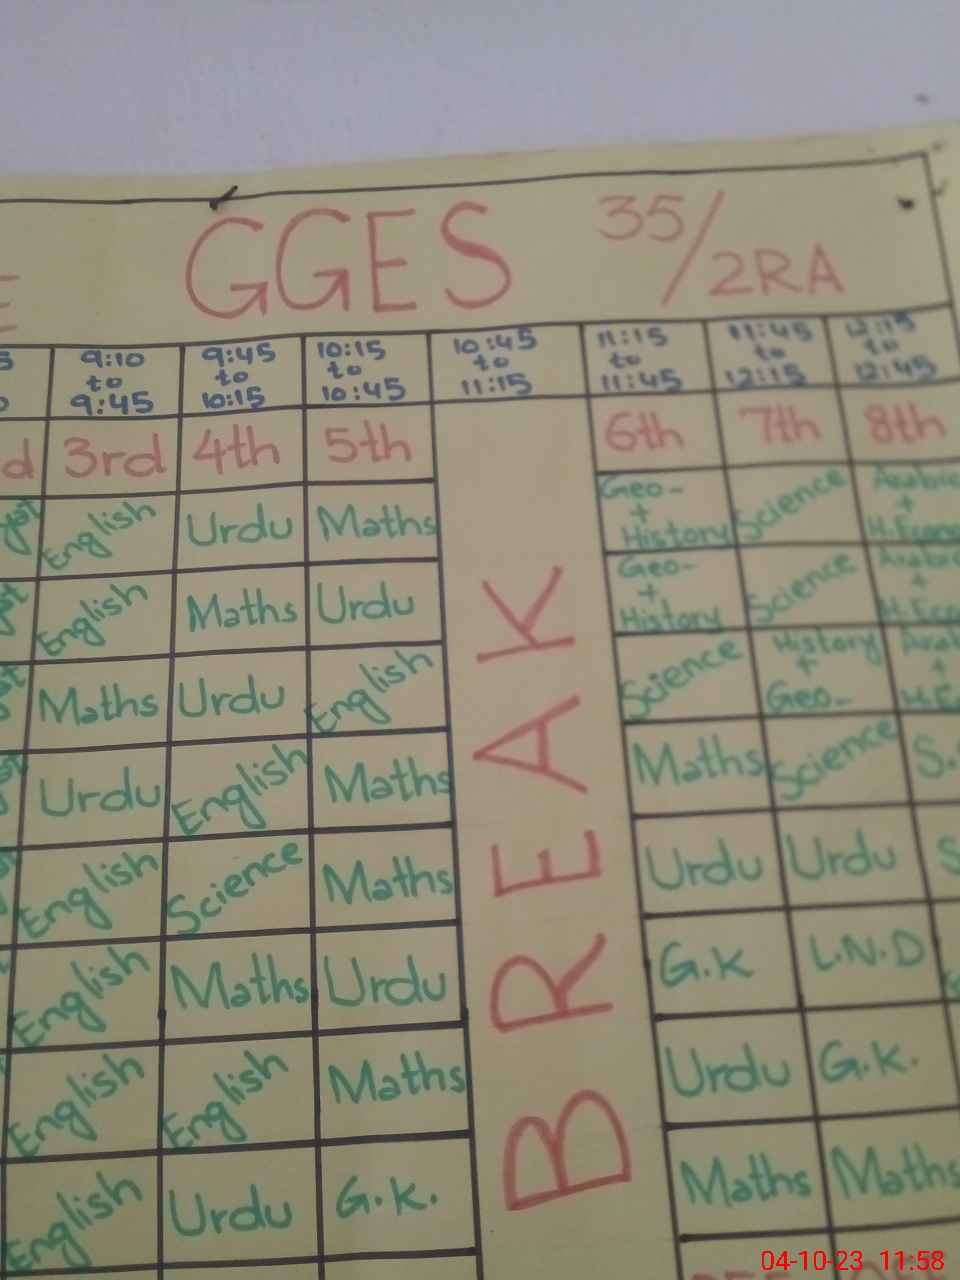 GGES 35/2RA
9:10 to 9:45 9:45 to 10:15 10:15 to 10:45 10:45 to 11:15 11:15 to 11:45 11:45 to 12:15 12:15 to 12:45
3rd 4th 5th 6th 7th 8th
English Urdu Maths Geo- + History Science Arabic +
English Maths Urdu Geo- + History Science Arabic +
Maths Urdu English Science History + Geo-
Urdu English Maths Maths Science
English Science Maths Urdu Urdu
English Maths Urdu G.K L.N.D
English English Maths Urdu G.K.
English Urdu G.K. Maths Maths
BREAK
04-10-23 11:58